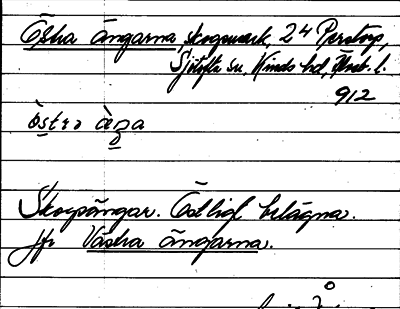 Östra ängarna, skogsmark, 24 Perstorp,
Sjötofta sn, Kinds hd, Älvsb. l.
912
östra äŋa
Skogsängar. Östligt belägna.
Jfr Västra ängarna.